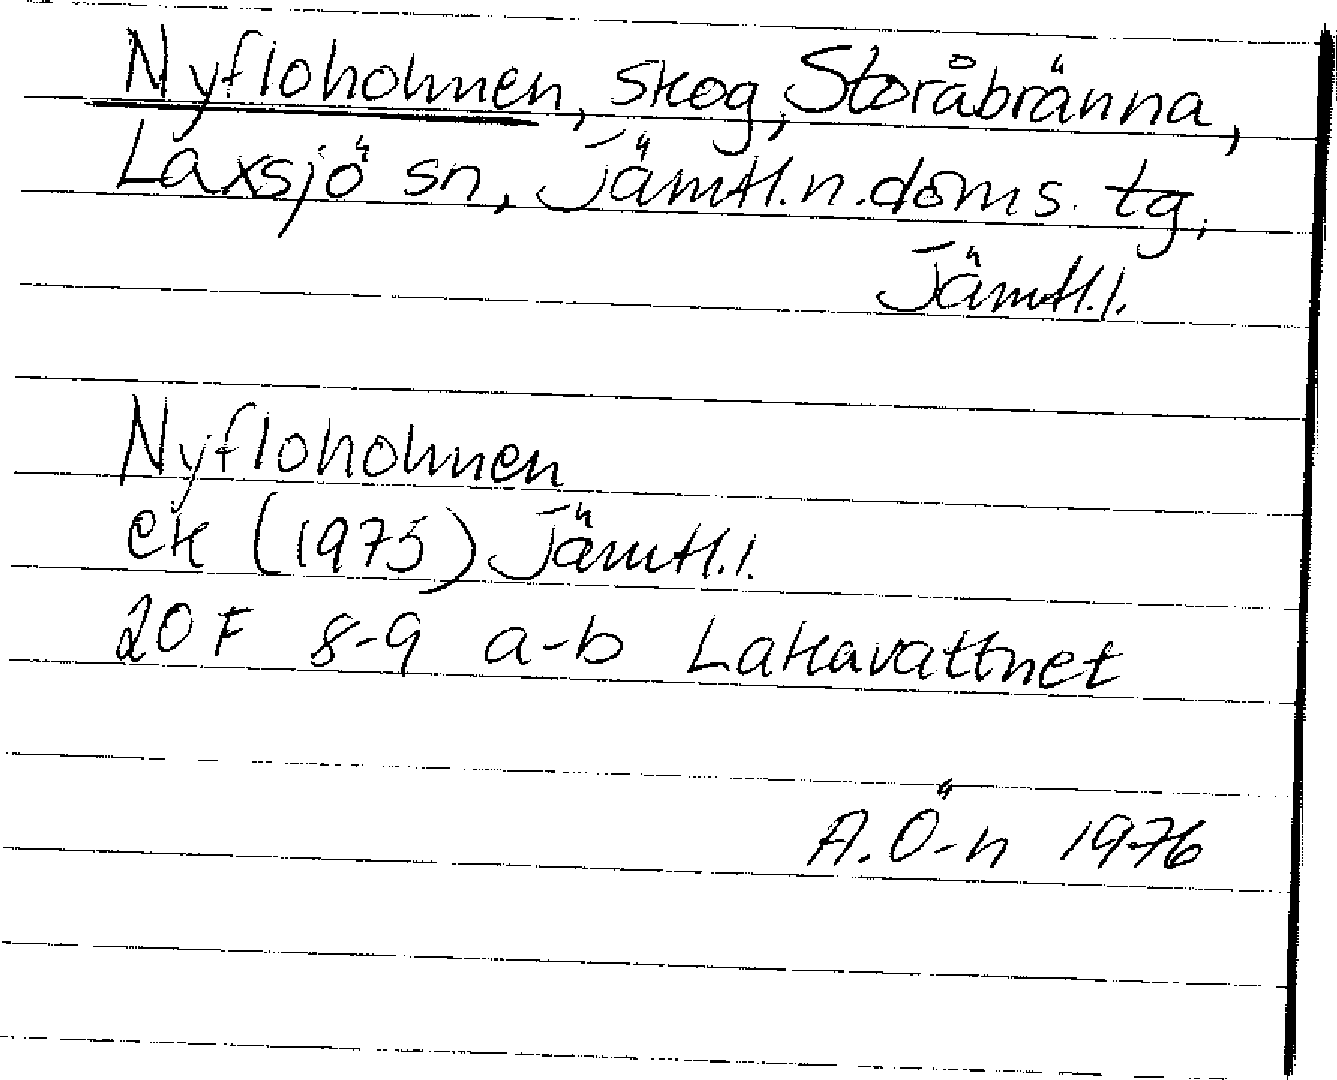 Nyfloholmen, skog, Storåbränna,
Laxsjö sn, Jämtl. n. doms. tg,
Jämtl. l.
Nyfloholmen
ek (1975) Jämtl. l.
20 F 8-9 a-b Lakavattnet
A. Ö-n 1976